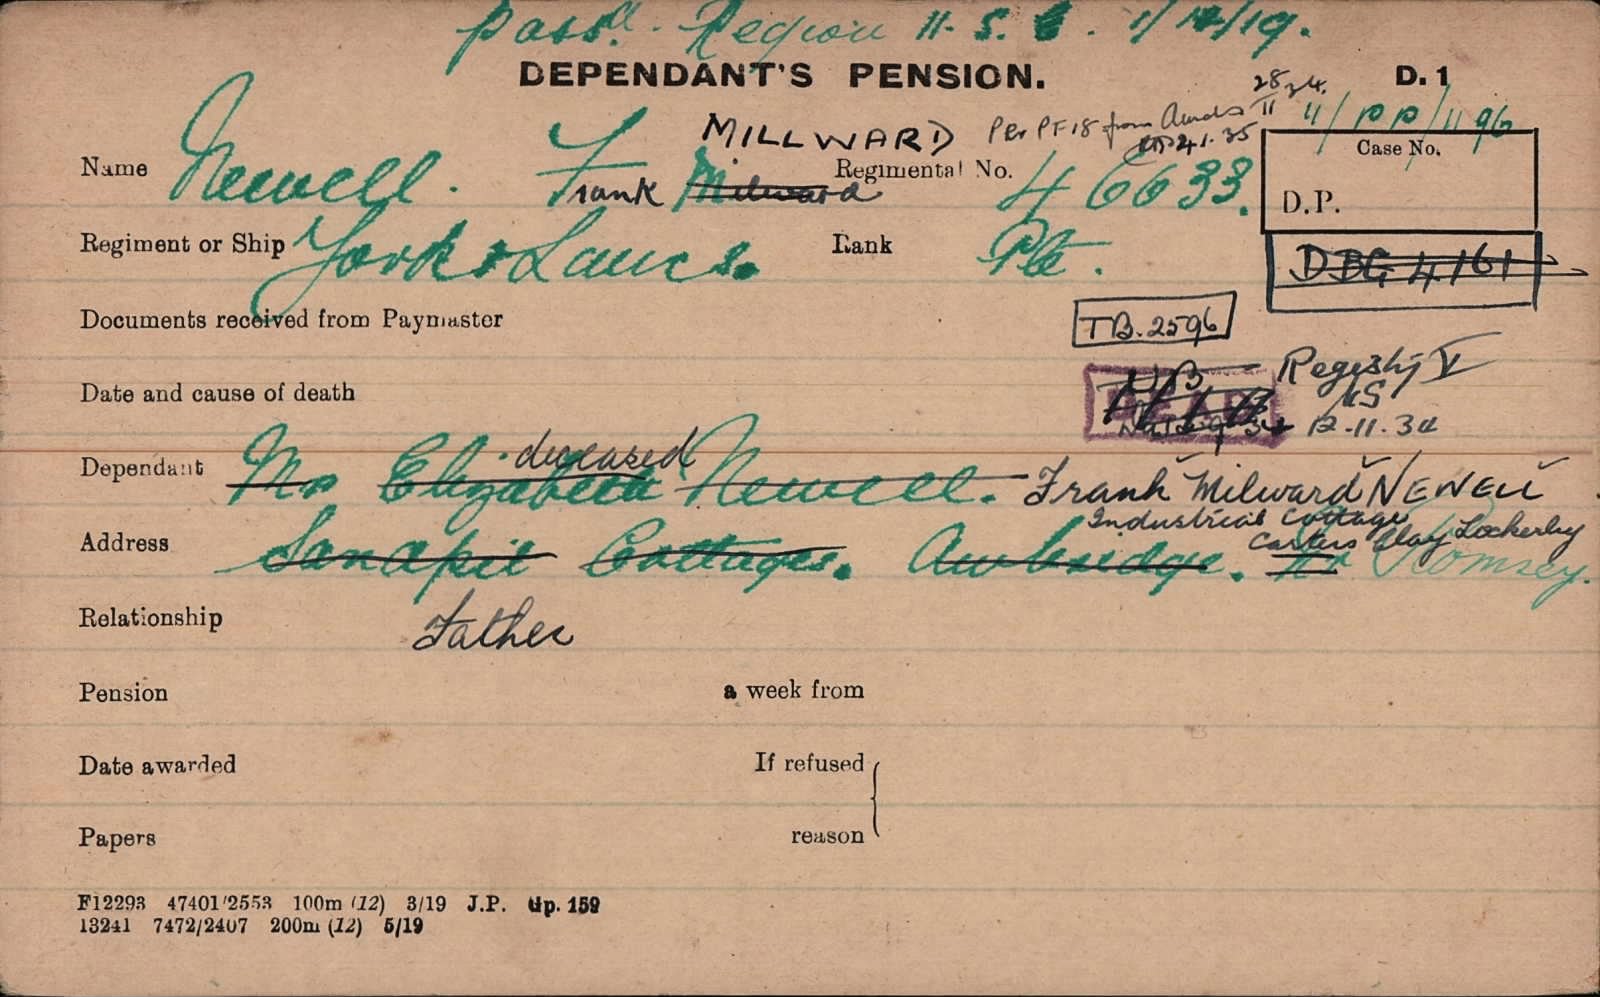 passd. Region II. S. 1/12/19.
DEPENDANT'S PENSION. D. 1
28 24.
MILLWARD Per PF 18 from Awards II 11/PP/1196
21.35
Name Newell. Frank Milward Regimental No. 46633. Case No.
D.P.
Regiment or Ship York & Lancs. Rank Pte. DBG 4161
Documents received from Paymaster TB. 2596
NB Registry V
DEAD MS
Date and cause of death 12-11-34
deceased
Dependant Mrs Elizabeth Newell. Frank Milward NEWELL
Industrial Cottage
Carters Clay Lockerley
Address Sandpit Cottages. Awbridge. Nr Romsey.
Relationship Father
Pension a week from
Date awarded If refused
Papers reason
F12293 47401/2553 100m (12) 3/19 J.P. Gp. 159
13241 7472/2407 200m (12) 5/19